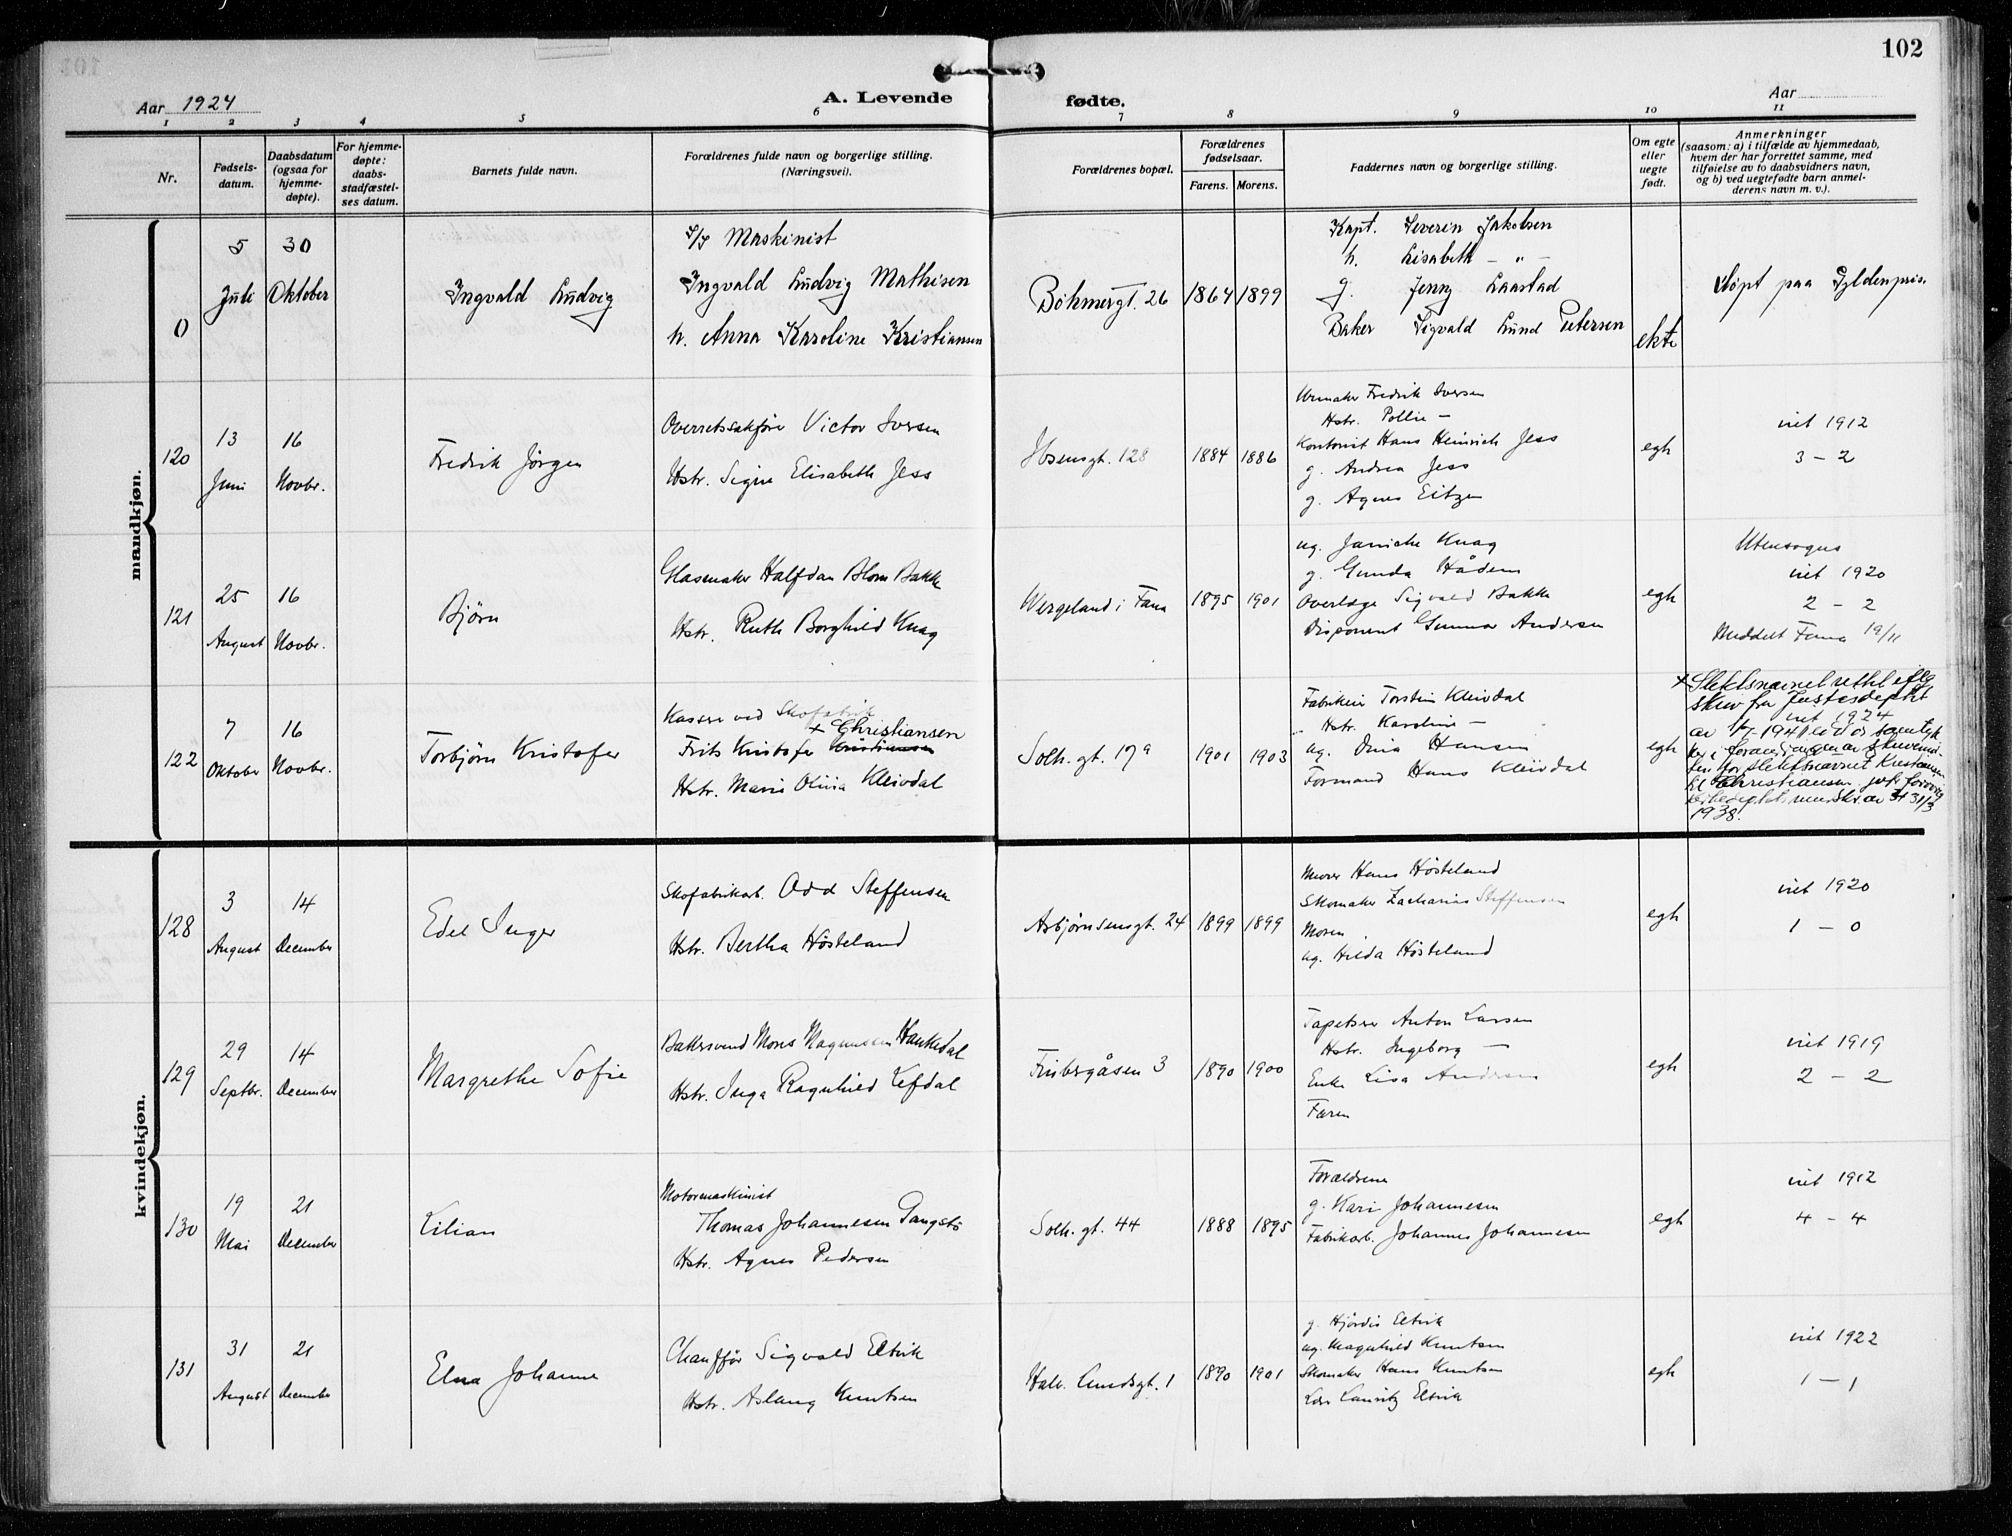 102
Aar 1924
A. Levende fødte.
Aar
1 2 3 4 5 6 7 8 9 10 11
Nr.
Fødsels-
datum.
Daabsdatum
(ogsaa for
hjemme-
døpte).
For hjemme-
døpte:
daabs-
stadfæstel-
ses datum.
Barnets fulde navn.
Forældrenes fulde navn og borgerlige stilling.
(Næringsvei).
Forældrenes bopæl.
Forældrenes
fødselsaar.
Farens. Morens.
Faddernes navn og borgerlige stilling.
Om egte
eller
uegte
født.
Anmerkninger
(saasom: a) i tilfælde av hjemmedaab,
hvem der har forrettet samme, med
tilføielse av to daabsvidners navn,
og b) ved uegtefødte barn anmel-
derens navn m. v.).
mandkjøn.
0
5
Juli
30
Oktober
Ingvald Ludvig
S/S Maskinist
Ingvald Ludvig Mathisen
h. Anna Karoline Kristiansen
Bøhmergt. 26
1864
1899
Kapt. Severin Jakobsen
h. Lisabeth - " -
g. Jenny Laastad
Baker Sigvald Lund Petersen
ekte
Døpt paa Gyldenpris.
120
13
Juni
16
Novbr.
Fredrik Jørgen
Overretssakfører Victor Iversen
Hstr. Signe Elisabeth Jess
Ibsensgt. 128
1884
1886
Urmaker Fredrik Iversen
Hstr. Pollie —
Kontorist Hans Heinrich Jess
g. Andrea Jess
g. Agnes Eitzen
egte
viet 1912
3 - 2
121
25
August
16
Novbr.
Bjørn
Glasmaker Halfdan Blom Bakke
Hstr. Ruth Borghild Knag
Wergeland i Fana
1895
1901
ug. Janiche Knag
g. Gunda Hådem
Overlæge Sigvald Bakke
Disponent Gunnar Andersen
egte
Utensogns
viet 1920
2 - 2
Meddelt Fana 19/11
122
7
Oktober
16
Novbr.
Torbjørn Kristofer
Kasserer ved Skofabrik
+ Christiansen
Frits Kristofer Kristiansen
Hstr. Marie Olivia Kleivdal
Solh. gt. 17a
1901
1903
Fabrikeier Torstein Kleivdal
Hstr. Karoline —
ug. Dina Hansen
Formand Hans Kleivdal
egte
+ Slektsnavnet rettet ifølg
skriv fra Justisdeptet
viet 1924
av 1/7-1941
slektsnavnet Kristiansen
til Christiansen
av 31/3
1938.
kvindekjøn.
128
3
August
14
December
Edel Inger
Skofabrikarb. Odd Steffensen
Hstr. Bertha Høsteland
Asbjørnsensgt. 24
1899
1899
Murer Hans Høsteland
Skomaker Zacharias Steffensen
Moren
ug. Hilda Høsteland
egte
viet 1920
1 - 0
129
29
Septbr.
14
December
Margrethe Sofie
Bakersvend Mons Magnussen Haukedal
Hstr. Inga Ragnhild Lefdal
Finbergåsen 3
1890
1900
Tapetserer Anton Larsen
Hstr. Ingeborg —
Enke Lisa Andersen
Faren
egte
viet 1919
2 - 2
130
19
Mai
21
December
Lilian
Motormaskinist
Thomas Johannesen Gangstø
Hstr. Agnes Pedersen
Solh. gt. 44
1888
1895
Forældrene
g. Kari Johannesen
Fabrikarb. Johannes Johannesen
egte
viet 1912
4 - 4
131
31
August
21
December
Elna Johanne
Chauffør Sigvald Eltvik
Hstr. Aslaug Knutsen
Halv. Lundsgt. 1
1890
1901
g. Hjørdis Eltvik
ug. Magnhild Knutsen
Skomaker Hans Knutsen
Lauritz Eltvik
egte
viet 1922
1 - 1